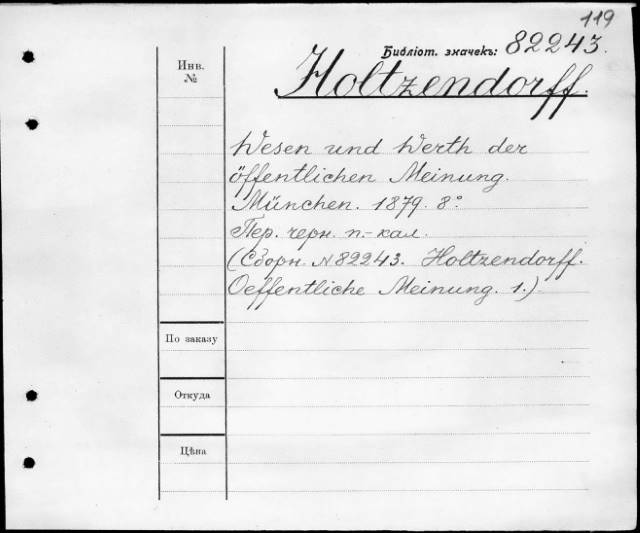 119
Библіот. значекъ: 82243.
Инв.
№
Holtzendorff.
Wesen und Werth der
öffentlichen Meinung.
München. 1879. 8°
Пер. черн. п.-кал.
(Сборн. №82243. Holtzendorff.
Oeffentliche Meinung. 1.)
По заказу
Откуда
Цѣна